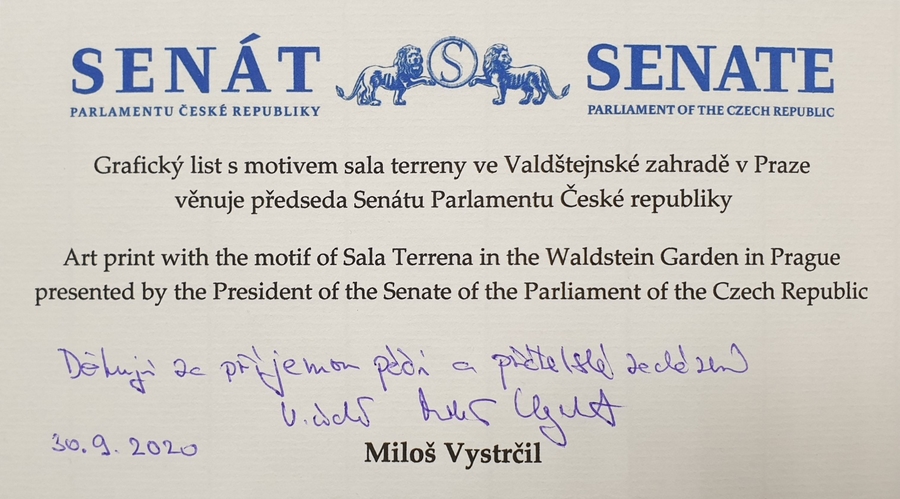 SENÁT
PARLAMENTU ČESKÉ REPUBLIKY
S
SENATE
PARLIAMENT OF THE CZECH REPUBLIC
Grafický list s motivem sala terreny ve Valdštejnské zahradě v Praze
věnuje předseda Senátu Parlamentu České republiky
Art print with the motif of Sala Terrena in the Waldstein Garden in Prague
presented by the President of the Senate of the Parliament of the Czech Republic
Děkuji za příjemnou péči a přátelské zacházení
30.9.2020
Miloš Vystrčil